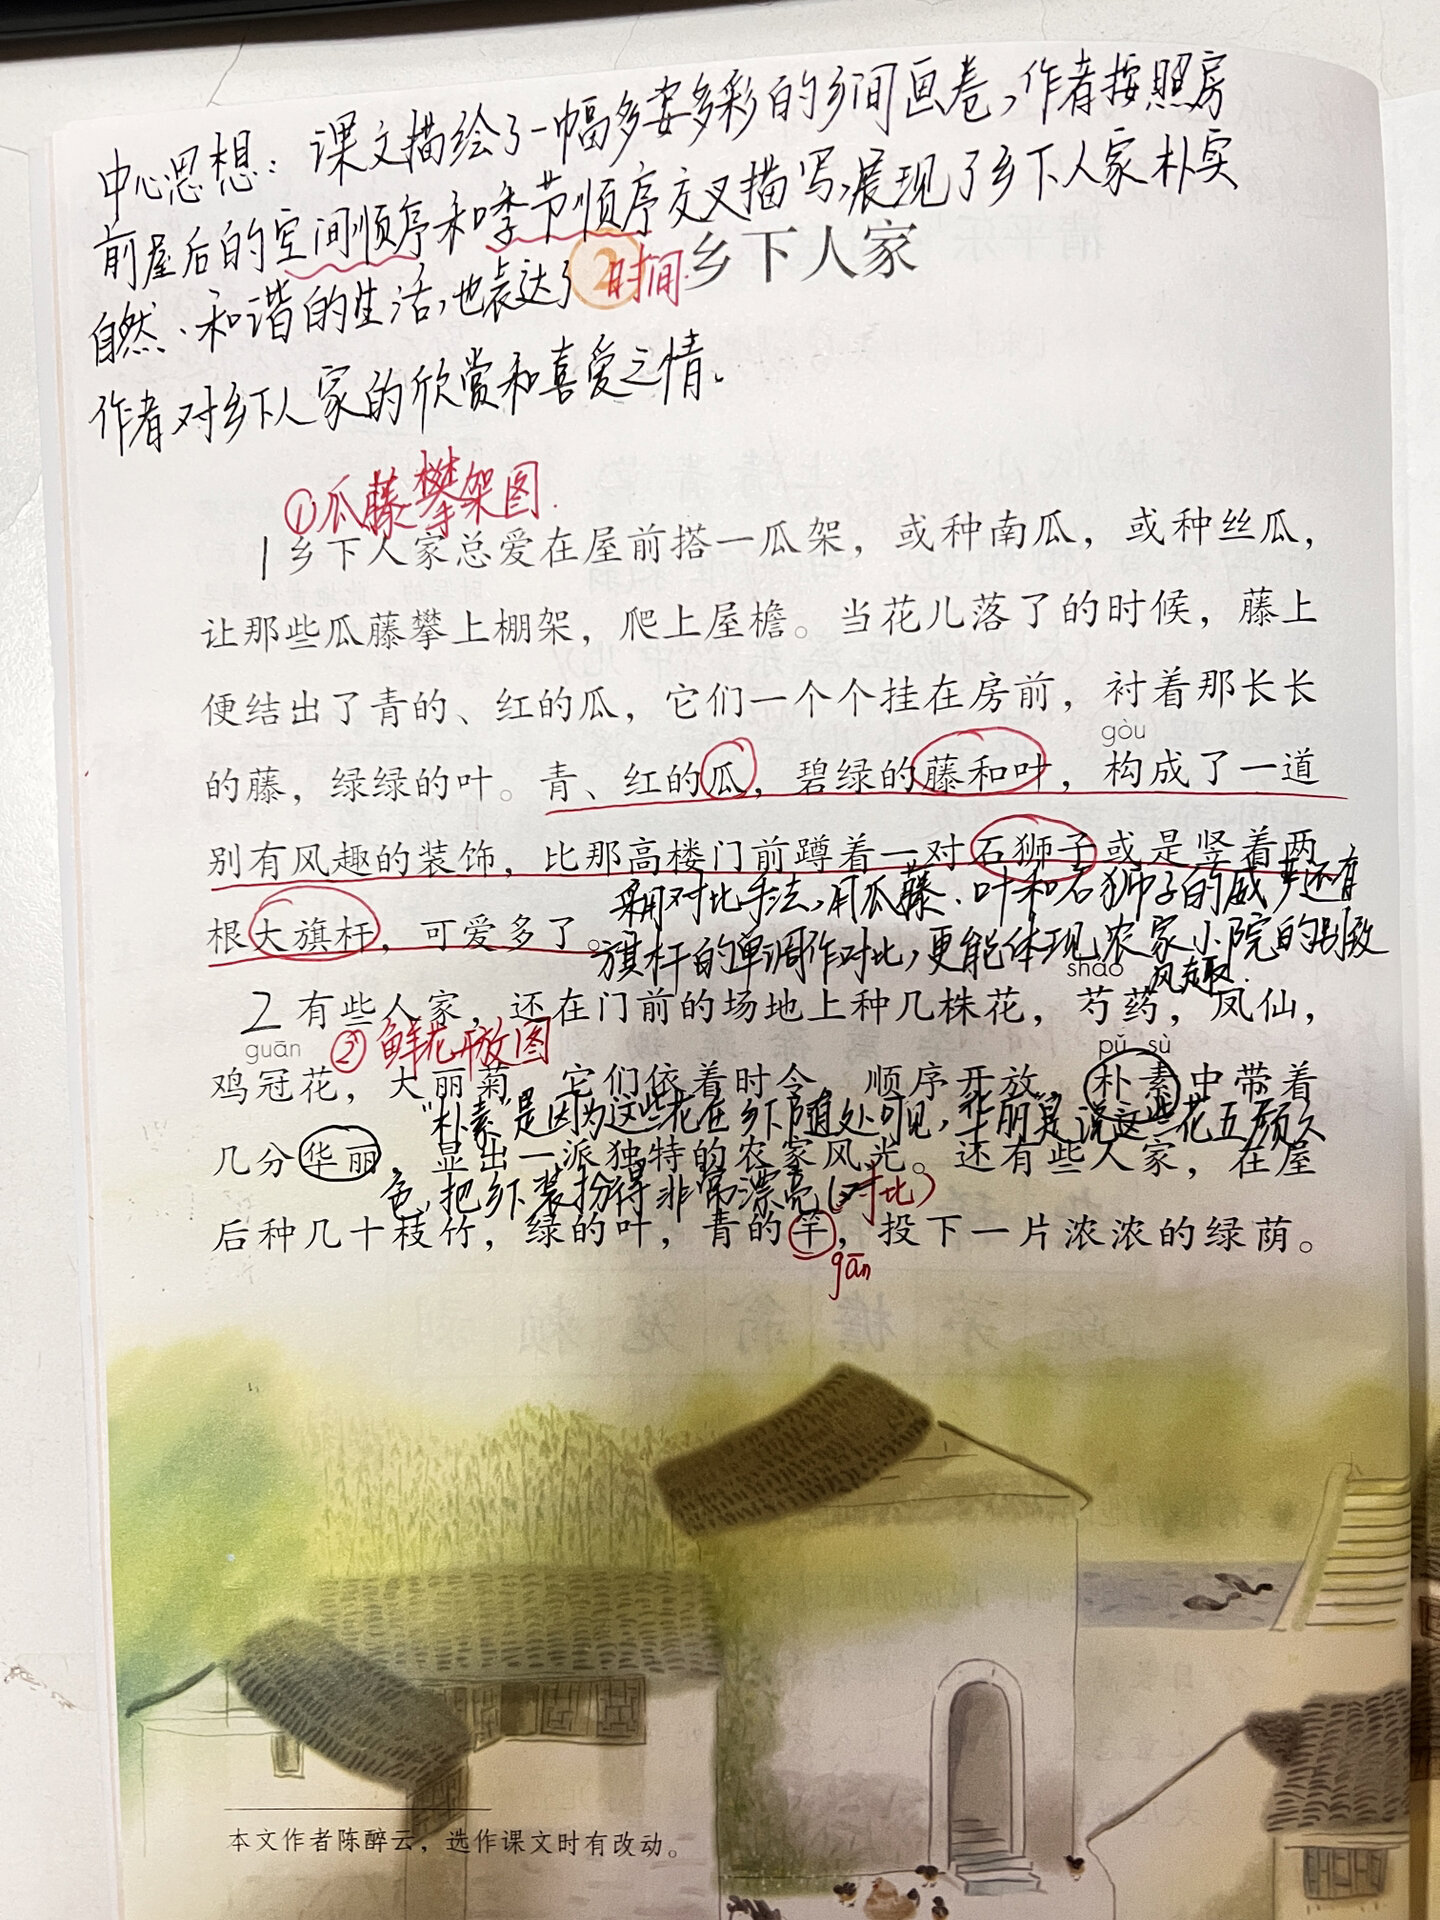 中心思想：课文描绘了一幅多姿多彩的乡间画卷，作者按照房
前屋后的空间顺序和季节顺序交叉描写，展现了乡下人家朴实
自然、和谐的生活，也表达了
作者对乡下人家的欣赏和喜爱之情。
时间
2 乡下人家
①瓜藤攀架图
1 乡下人家总爱在屋前搭一瓜架，或种南瓜，或种丝瓜，
让那些瓜藤攀上棚架，爬上屋檐。当花儿落了的时候，藤上
便结出了青的、红的瓜，它们一个个挂在房前，衬着那长长
gòu
的藤，绿绿的叶。青、红的瓜，碧绿的藤和叶，构成了一道
别有风趣的装饰，比那高楼门前蹲着一对石狮子或是竖着两
根大旗杆，可爱多了。
采用对比手法，用瓜藤、叶和石狮子的威严还有
旗杆的单调作对比，更能体现农家小院的别致
风趣.
sháo
2 有些人家，还在门前的场地上种几株花，芍药，凤仙，
②鲜花开放图
guān pǔ sù
鸡冠花，大丽菊，它们依着时令，顺序开放，朴素中带着
“朴素”是因为这些花在乡下随处可见，华丽”是说这些花五颜六
几分华丽，显出一派独特的农家风光。还有些人家，在屋
色，把乡下装扮得非常漂亮（对比）
后种几十枝竹，绿的叶，青的竿，投下一片浓浓的绿荫。
gān
本文作者陈醉云，选作课文时有改动。